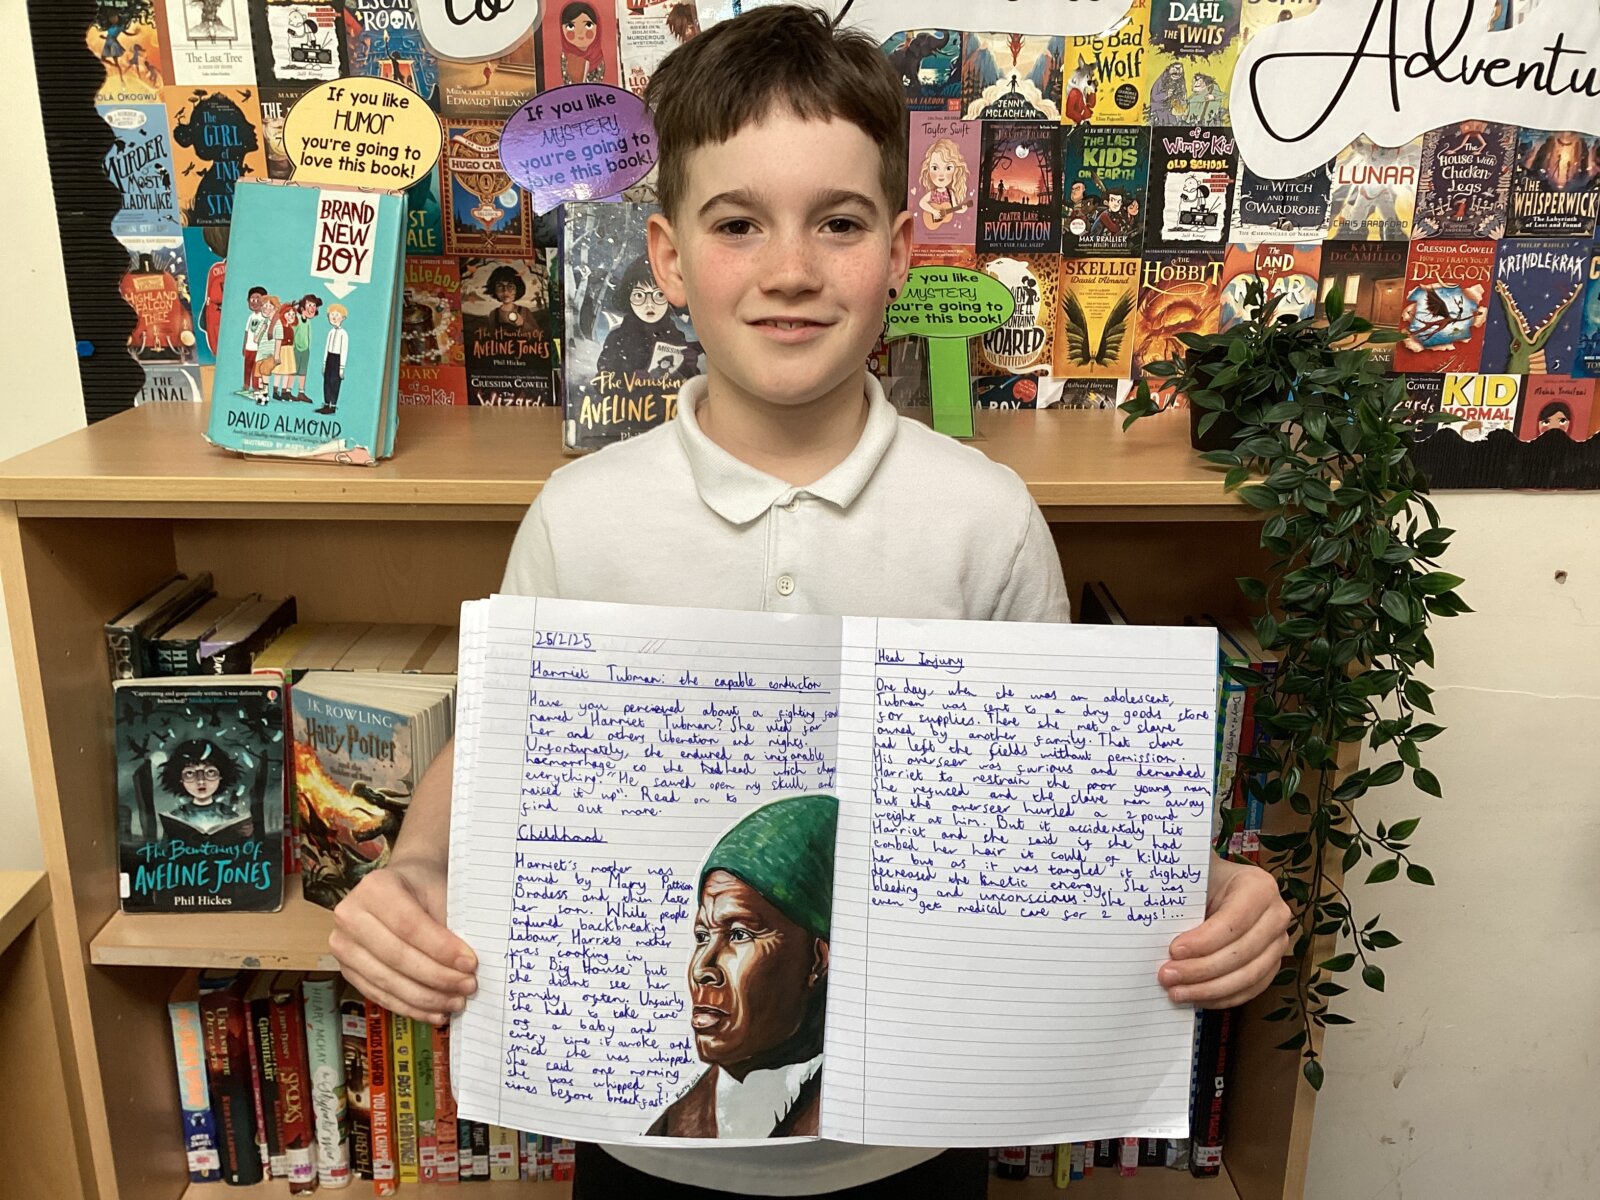 to
Adventu
ESCAPE
ROOM
The Last Tree
DAHL
THE TWITS
Big Bad
Wolf
JENNY
MCLACHLAN
EDWARD TULANE
If you like
HUMOR
you're going to
love this book!
If you like
MYSTERY
you're going to
love this book!
If you like
MYSTERY
you're going to
love this book!
MURDER
MOST
LADYLIKE
THE
GIRL
of
INK
&
STARS
HUGO CABRET
Taylor Swift
CRATER LAKE
EVOLUTION
THE LAST
KIDS
ON EARTH
MAX BRALLIER
of a
Wimpy Kid
OLD SCHOOL
THE WITCH
AND THE
WARDROBE
THE CHRONICLES OF NARNIA
LUNAR
CHRIS BRADFORD
The
HOUSE with
CHICKEN
Legs
THE
WHISPERWICK
The Labyrinth
of Lost and Found
BRAND
NEW
BOY
DAVID ALMOND
The Haunting Of
AVELINE JONES
Phil Hickes
CRESSIDA COWELL
The Wizards
The Vanishing
AVELINE JO
MISSING
ROARED
SKELLIG
David Almond
The
HOBBIT
The
LAND
of
ROAR
KATE
DICAMILLO
CRESSIDA COWELL
HOW TO TRAIN YOUR
DRAGON
PHILIP RIDLEY
KRINDLEKRAX
HIGHLAND
FALCON
THIEF
THE
FINAL
KID
NORMAL
"Captivating and gorgeously written. I was definitely
bewitched"
The Bewitching Of
AVELINE JONES
Phil Hickes
J.K. ROWLING
Harry Potter
and the
Goblet of Fire
25/2/25
Harriet Tubman: the capable conductor
Have you percieved about a fighting
named Harriet Tubman? She vied for
her and others liberation and rights.
Unfortunately, she endured a inexorable
haemorrhage to the head which
everything "He sawed open my skull, and
raised it up". Read on to
find out more.
Childhood
Harriet's mother was
owned by Mary Pattison
Brodess and then later
her son. While people
endured backbreaking
labour, Harriets mother
was cooking in
'The Big House' but
she didnt see her
family often. Unfairly
she had to take care
of a baby and
every time it awoke and
cried she was whipped.
She said one morning
she was whipped 5
times before breakfast!
Head Injury
One day, when she was an adolescent,
Tubman was sent to a dry goods store
for supplies. There she met a slave
owned by another family. That slave
had left the fields without permission.
His overseer was furious and demanded
Harriet to restrain the poor young man,
She refused and the slave ran away
but the overseer hurled a 2 pound
weight at him. But it accidentaly hit
Harriet and she said if she had
combed her hair it could of killed
her but as it was tangled it slightly
decreased the kinetic energy. She was
bleeding and unconscious. She didnt
even get medical care for 2 days!...
HILARY MCKAY
SPOOKS
YOU ARE A CHAMPION